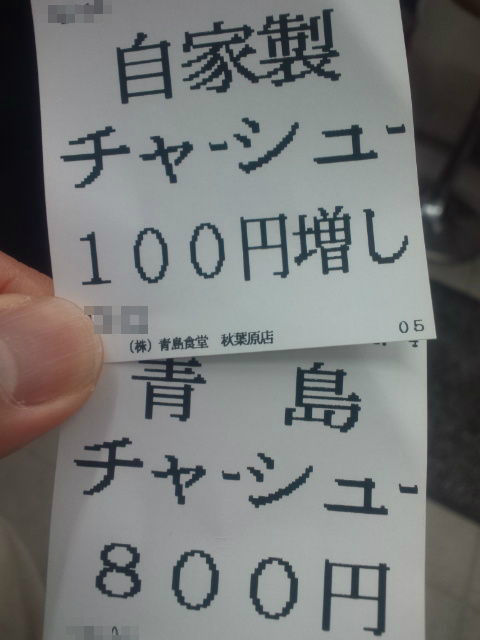 自家製
チャーシュー
100円増し
(株) 青島食堂 秋葉原店 05
青 島
チャーシュー
800円